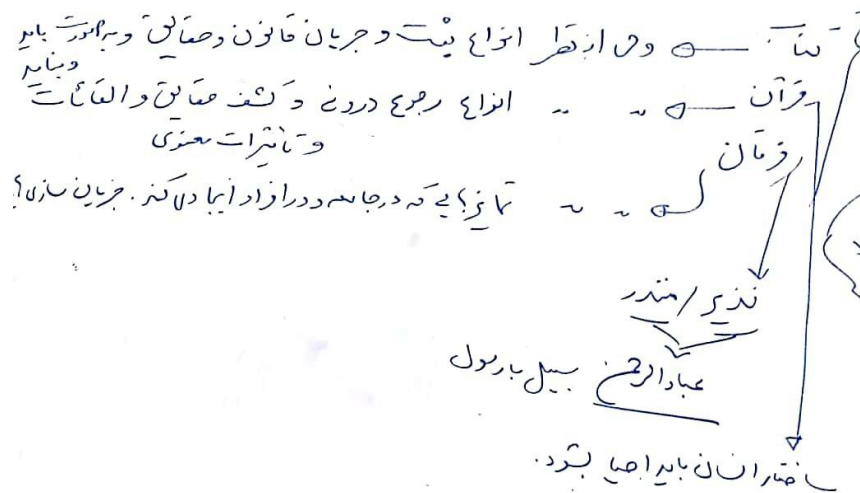 کتاب ← وحی از نظر انواع ثبت و جریان قانون و حقایق و به صورت باید
و نباید
قرآن ← 〃 〃 انواع رجوع درونی و کشف حقایق و القائات
و تأثیرات معنوی
فرقان ← 〃 〃 تمایزهایی که در جامعه و در افراد ایجاد می کند. جریان سازی؟
نذیر / منذر
عبادالرحمن سبیل با رسول
ساختار انسان باید احیا بشود.